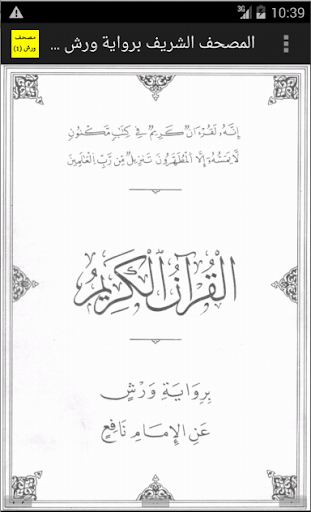 3G 10:39
المصحف الشريف برواية ورش ...
مصحف
ورش (1)
إِنَّهُۥ لَقُرْءَانٌ كَرِيمٌ فِى كِتَٰبٍ مَّكْنُونٍ
لَّا يَمَسُّهُۥٓ إِلَّا اَ۬لْمُطَهَّرُونَ تَنزِيلٌ مِّن رَّبِّ اِ۬لْعَٰلَمِينَ
الْقُرْآنُ الْكَرِيمُ
بِرِوَايَةِ وَرْشٍ
عَنِ الْإِمَامِ نَافِعٍ